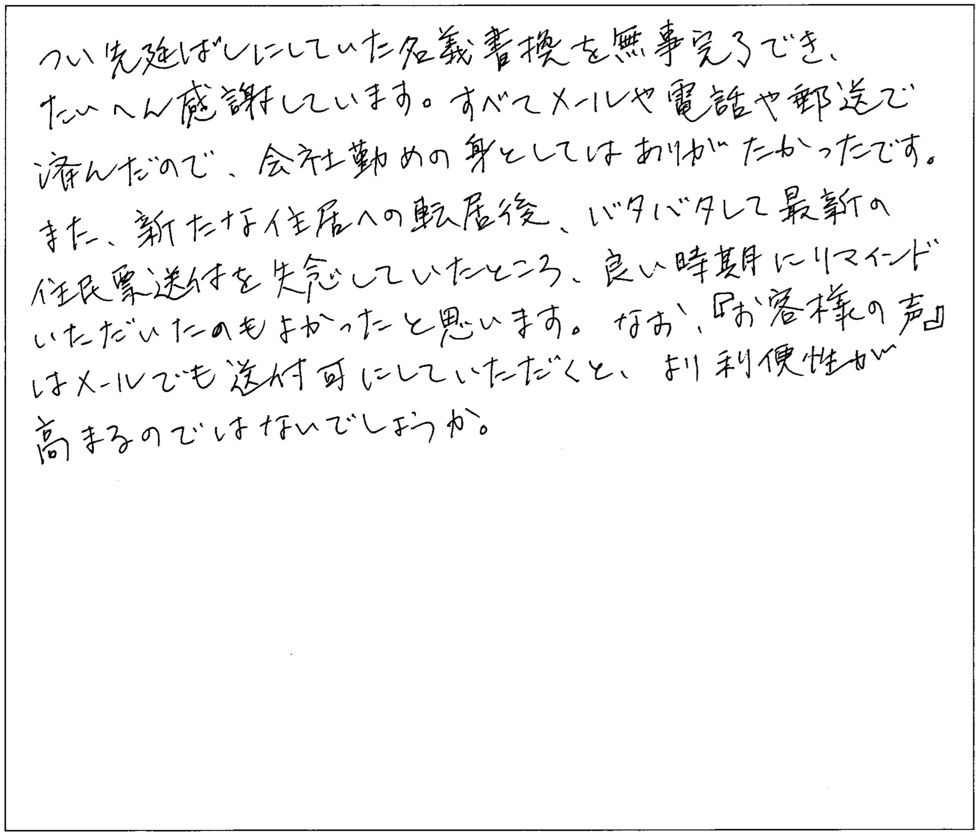 つい先延ばしにしていた名義書換を無事完了でき、
たいへん感謝しています。すべてメールや電話や郵送で
済んだので、会社勤めの身としてはありがたかったです。
また、新たな住居への転居後、バタバタして最新の
住民票送付を失念していたところ、良い時期にリマインド
いただいたのもよかったと思います。なお、『お客様の声』
はメールでも送付可にしていただくと、より利便性が
高まるのではないでしょうか。